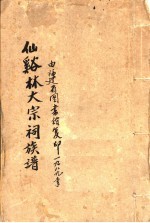 仙谿林大宗祠族譜
由福建省图書館复印一九八九年